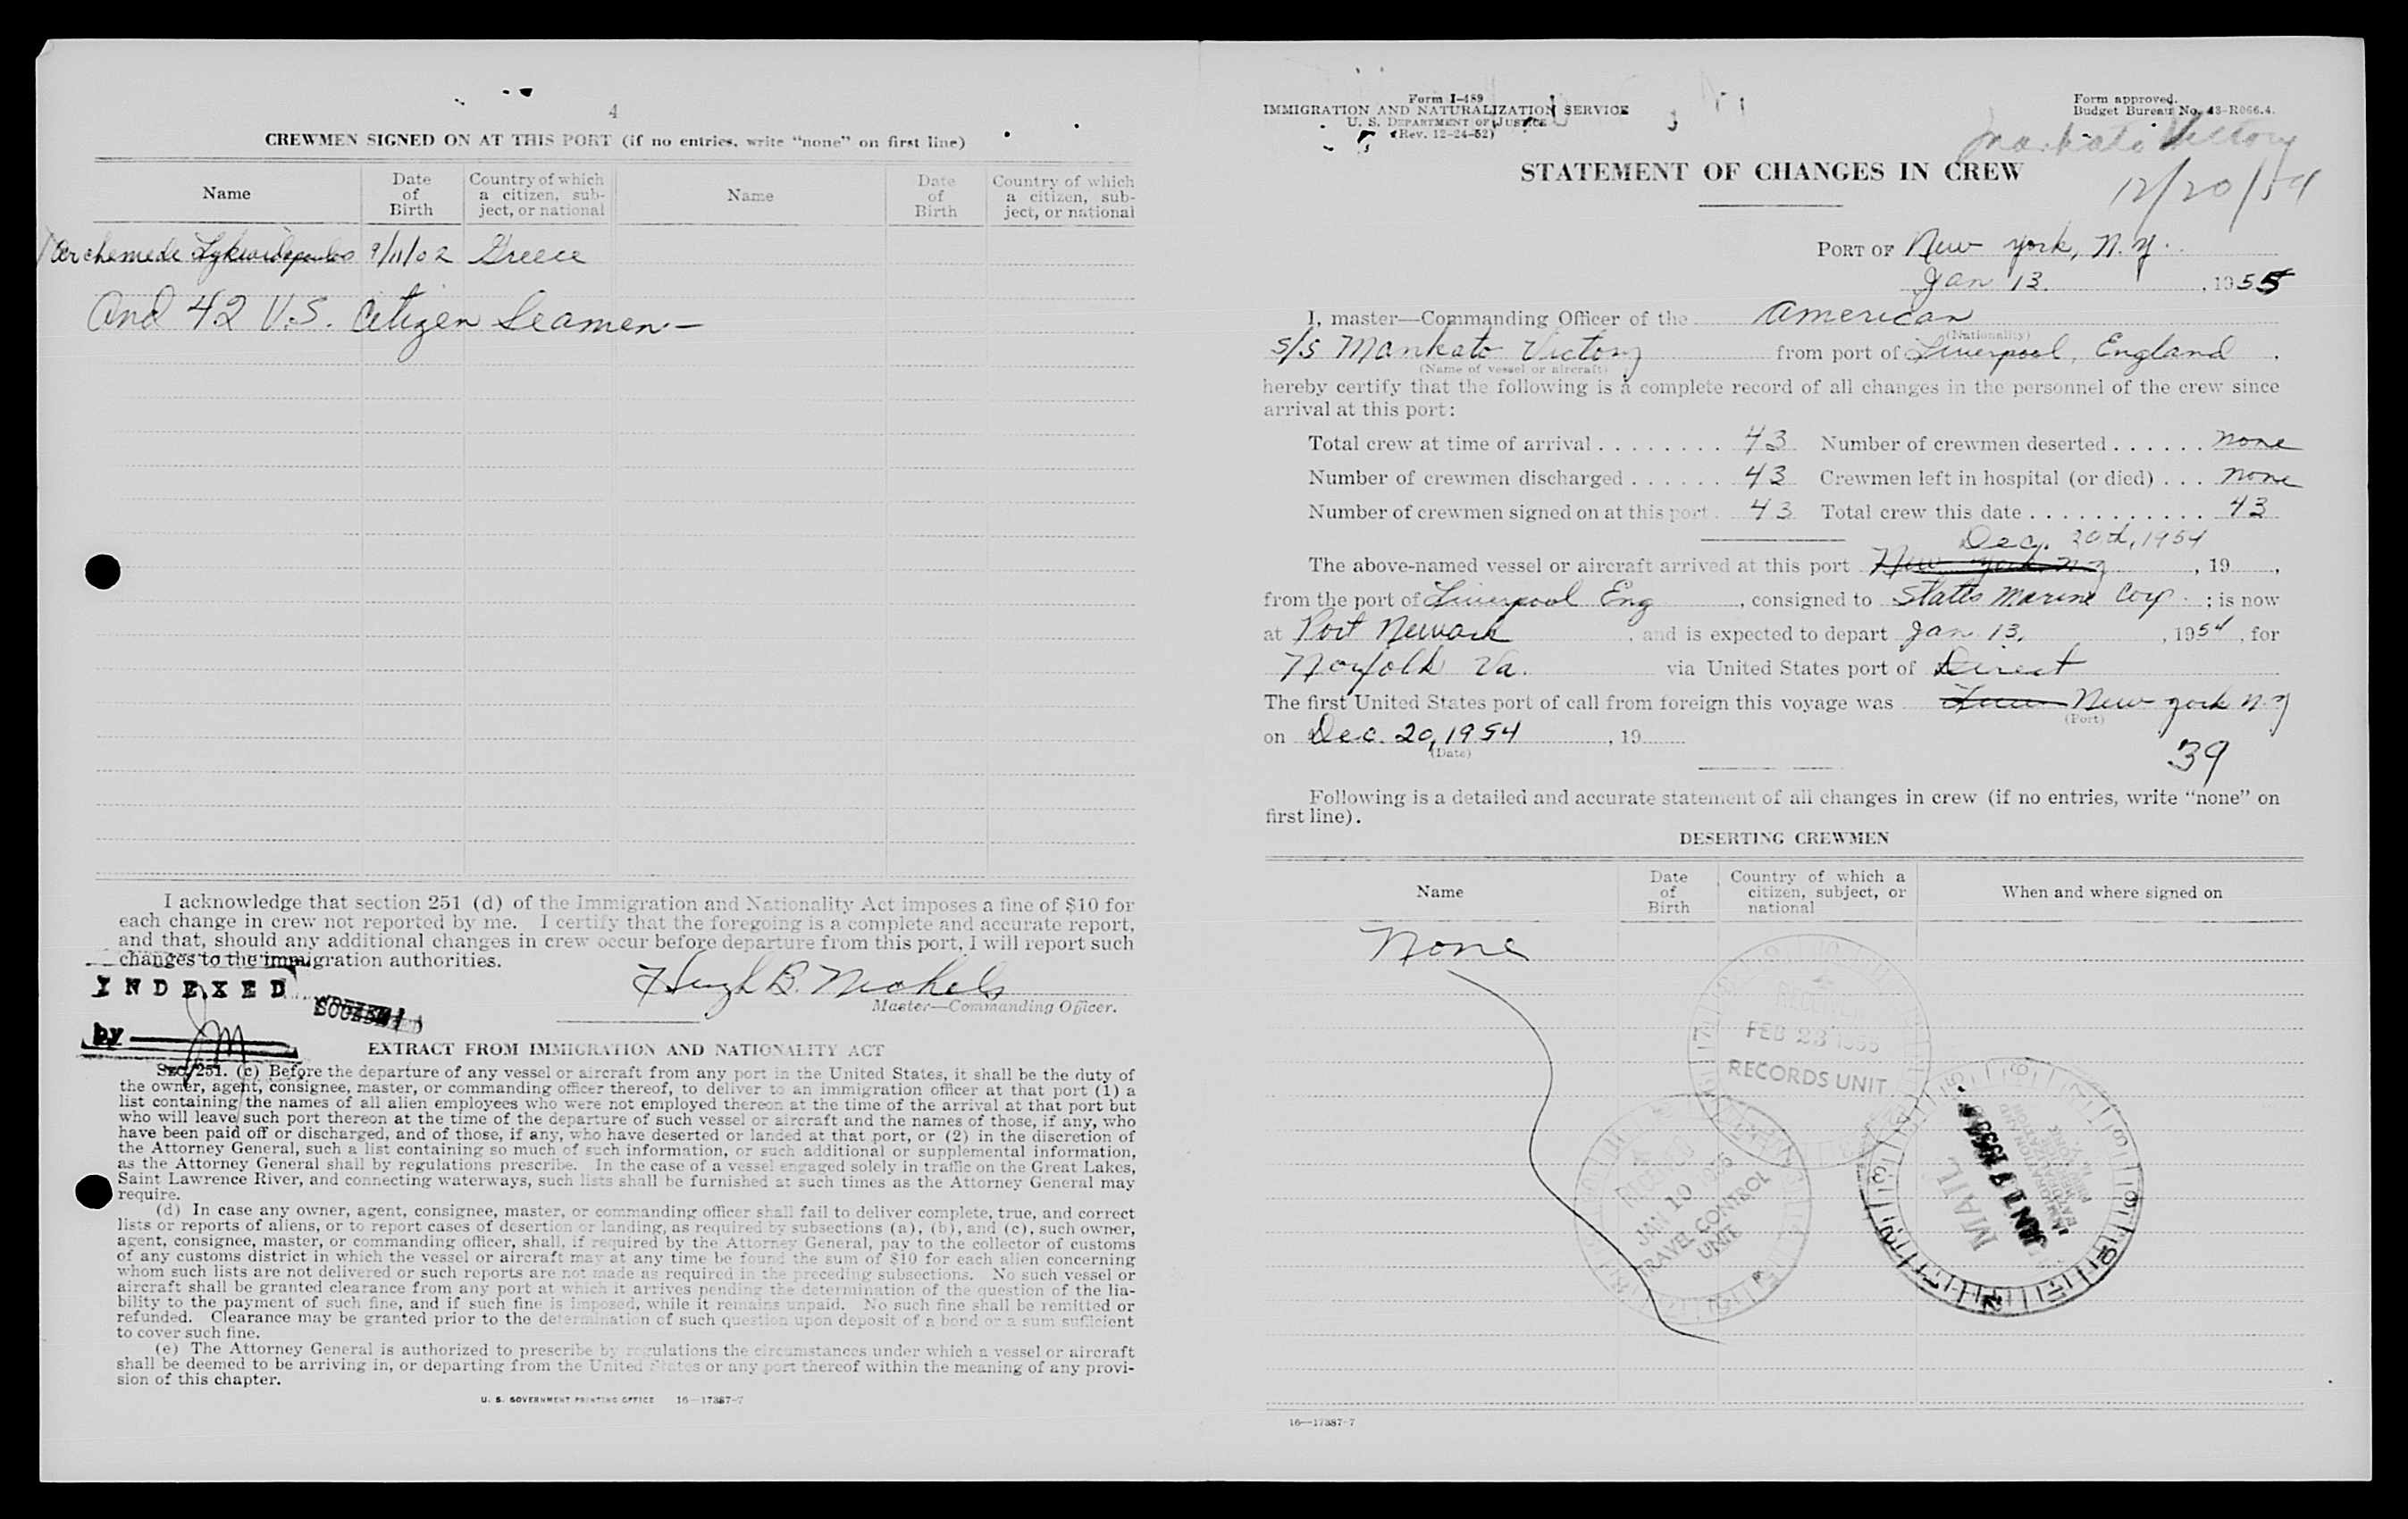 4
CREWMEN SIGNED ON AT THIS PORT (if no entries, write "none" on first line)
Name
Date of Birth
Country of which a citizen, subject, or national
Name
Date of Birth
Country of which a citizen, subject, or national
9/11/02 Greece
And 42 U.S. Citizen Seamen.—
I acknowledge that section 251 (d) of the Immigration and Nationality Act imposes a fine of $10 for
each change in crew not reported by me. I certify that the foregoing is a complete and accurate report,
and that, should any additional changes in crew occur before departure from this port, I will report such
changes to the immigration authorities.
Hugh B. Nichols
Master—Commanding Officer.
INDEXED
by JM
EXTRACT FROM IMMIGRATION AND NATIONALITY ACT
SEC. 251. (c) Before the departure of any vessel or aircraft from any port in the United States, it shall be the duty of
the owner, agent, consignee, master, or commanding officer thereof, to deliver to an immigration officer at that port (1) a
list containing the names of all alien employees who were not employed thereon at the time of the arrival at that port but
who will leave such port thereon at the time of the departure of such vessel or aircraft and the names of those, if any, who
have been paid off or discharged, and of those, if any, who have deserted or landed at that port, or (2) in the discretion of
the Attorney General, such a list containing so much of such information, or such additional or supplemental information,
as the Attorney General shall by regulations prescribe. In the case of a vessel engaged solely in traffic on the Great Lakes,
Saint Lawrence River, and connecting waterways, such lists shall be furnished at such times as the Attorney General may
require.
(d) In case any owner, agent, consignee, master, or commanding officer shall fail to deliver complete, true, and correct
lists or reports of aliens, or to report cases of desertion or landing, as required by subsections (a), (b), and (c), such owner,
agent, consignee, master, or commanding officer, shall, if required by the Attorney General, pay to the collector of customs
of any customs district in which the vessel or aircraft may at any time be found the sum of $10 for each alien concerning
whom such lists are not delivered or such reports are not made as required in the preceding subsections. No such vessel or
aircraft shall be granted clearance from any port at which it arrives pending the determination of the question of the lia-
bility to the payment of such fine, and if such fine is imposed, while it remains unpaid. No such fine shall be remitted or
refunded. Clearance may be granted prior to the determination of such question upon deposit of a bond or a sum sufficient
to cover such fine.
(e) The Attorney General is authorized to prescribe by regulations the circumstances under which a vessel or aircraft
shall be deemed to be arriving in, or departing from the United States or any port thereof within the meaning of any provi-
sion of this chapter.
U. S. GOVERNMENT PRINTING OFFICE 16—17387-7
Form I-489
IMMIGRATION AND NATURALIZATION SERVICE
U. S. DEPARTMENT OF JUSTICE
(Rev. 12-24-52)
Form approved.
Budget Bureau No. 43-R066.4.
Mankato Victory
12/20/54
STATEMENT OF CHANGES IN CREW
PORT OF New York, N.Y.
Jan 13. , 1955
I, master—Commanding Officer of the American
(Nationality)
S/S Mankato Victory from port of Liverpool, England .
(Name of vessel or aircraft)
hereby certify that the following is a complete record of all changes in the personnel of the crew since
arrival at this port:
Total crew at time of arrival . . . . . . . . 43 Number of crewmen deserted . . . . . . none
Number of crewmen discharged . . . . . . 43 Crewmen left in hospital (or died) . . . none
Number of crewmen signed on at this port . 43 Total crew this date . . . . . . . . . . . . 43
Dec. 20th, 1954
The above-named vessel or aircraft arrived at this port New York N.Y , 19 ,
from the port of Liverpool Eng , consigned to States Marine Corp. ; is now
at Port Newark , and is expected to depart Jan. 13, , 1954 , for
Norfolk Va. via United States port of Direct
The first United States port of call from foreign this voyage was New York N.Y
(Port)
on Dec. 20, 1954 , 19
(Date)
39
Following is a detailed and accurate statement of all changes in crew (if no entries, write "none" on
first line).
DESERTING CREWMEN
Name
Date of Birth
Country of which a citizen, subject, or national
When and where signed on
None
RECEIVED
FEB 23 1955
RECORDS UNIT
RECEIVED
JAN 10
TRAVEL CONTROL
UNIT
MAIL
16—17387-7